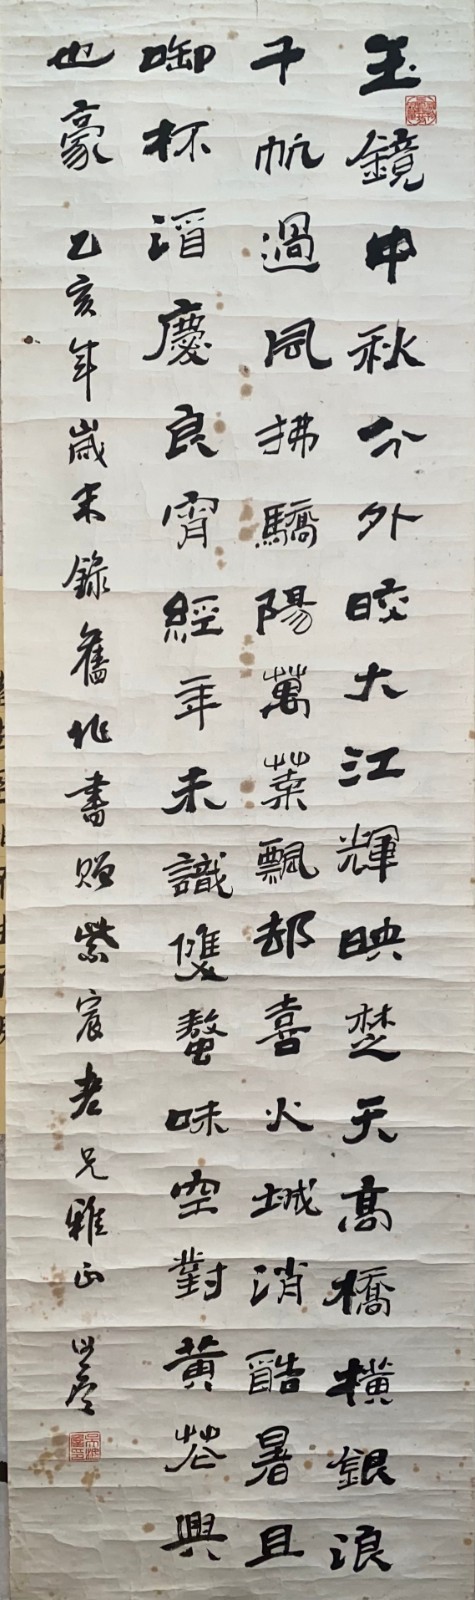 玉鏡中秋分外皎大江輝映楚天高橋橫銀浪
千帆過風拂驕陽萬葉飄却喜火城消酷暑且
啣杯酒慶良宵經年未識雙螯味空對黃花興
也豪 乙亥年歲末錄舊作書貽紫宸老兄雅正